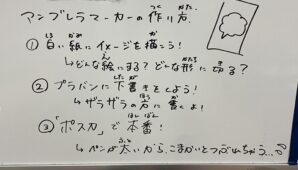 アンブレラマーカーの作り方
① 白い紙にイメージを描こう！
↳どんな絵にする？どんな形に切る？
② プラバンに下書きをしよう！
↳ザラザラの方に書くよ！
③「ポスカ」で本番！
↳ペンが太いから、こまかいとつぶれちゃう…